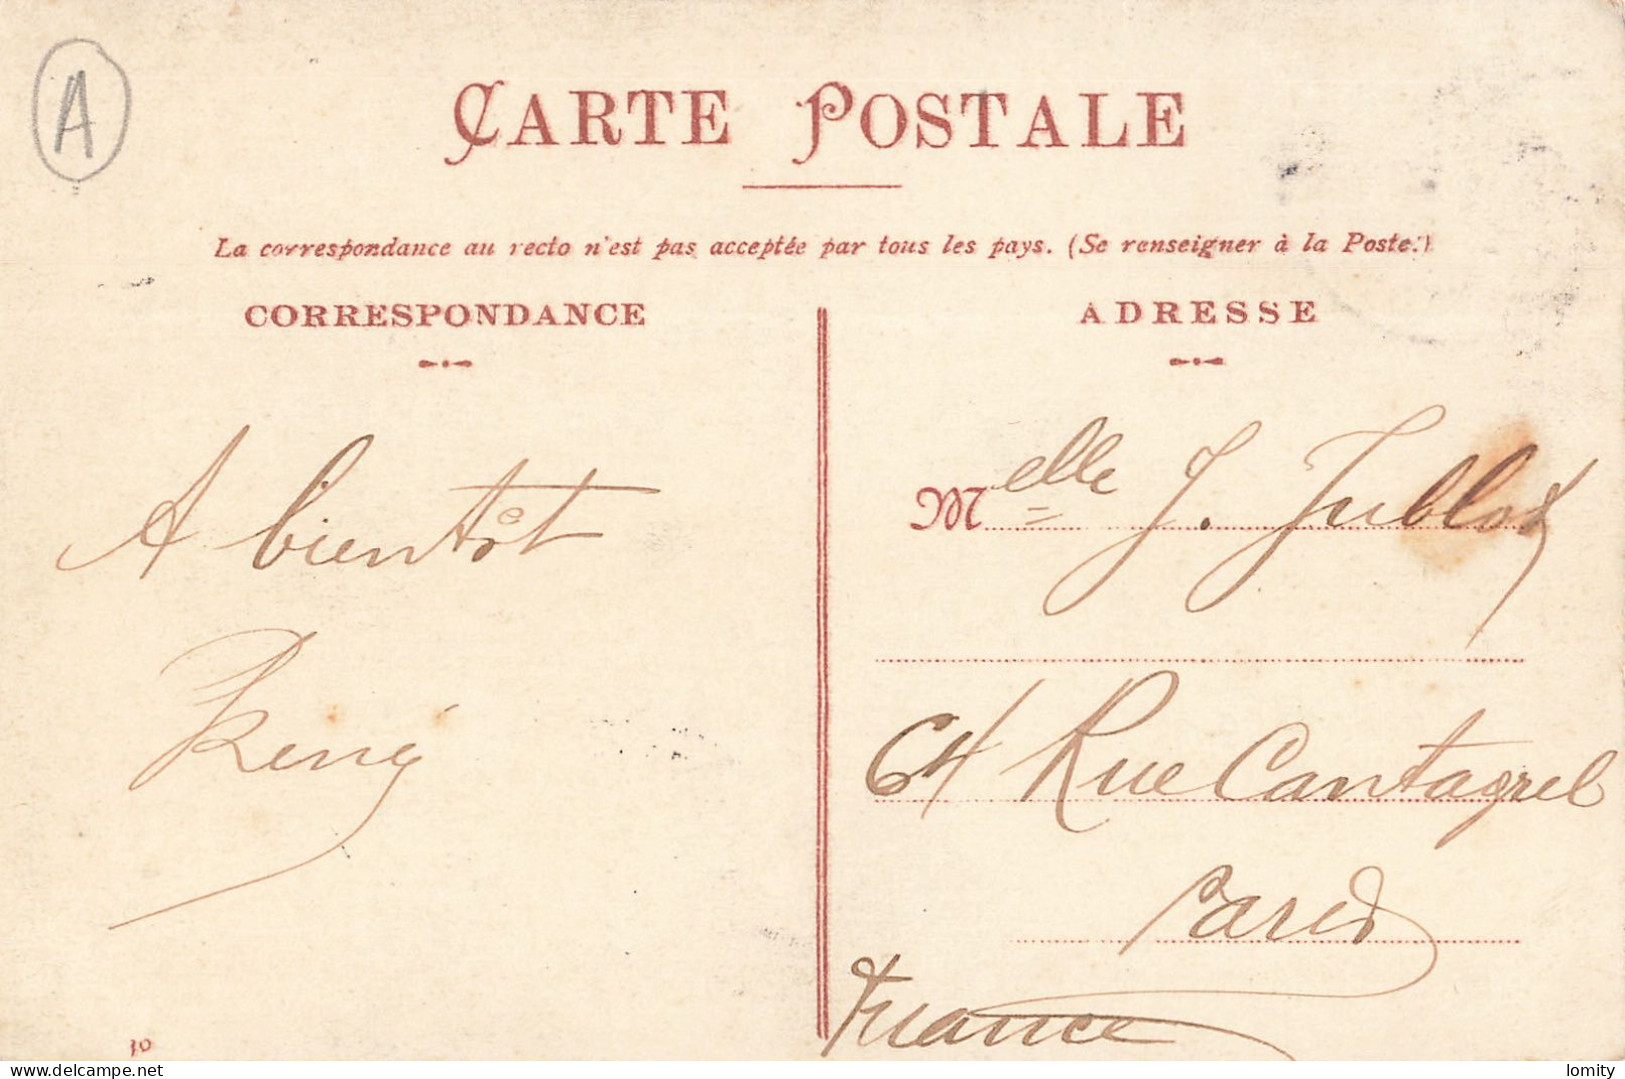 A
CARTE POSTALE
La correspondance au recto n'est pas acceptée par tous les pays. (Se renseigner à la Poste.)
CORRESPONDANCE
A bientôt
René
ADRESSE
Melle J. Jublot
64 Rue Cantagrel
Paris
France
30
delcampe.net
lomity